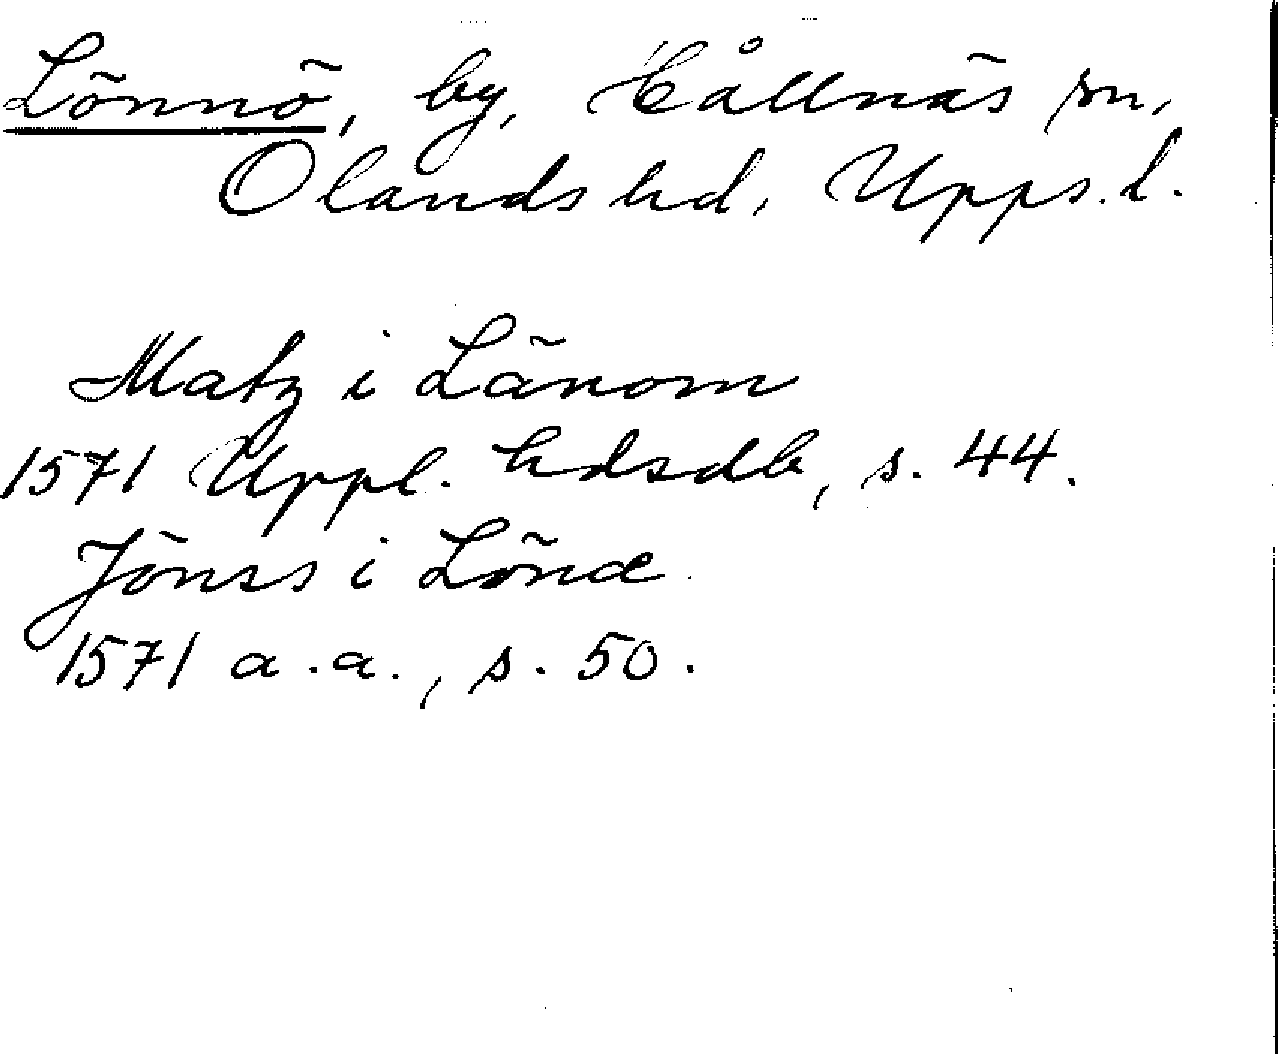 Lönnö, by, Hållnäs sn,
Olands hd, Upps. l.
Matz i Länom
1571 Uppl. hdsdb, s. 44.
Jönss i Lönæ
1571 a.a., s. 50.